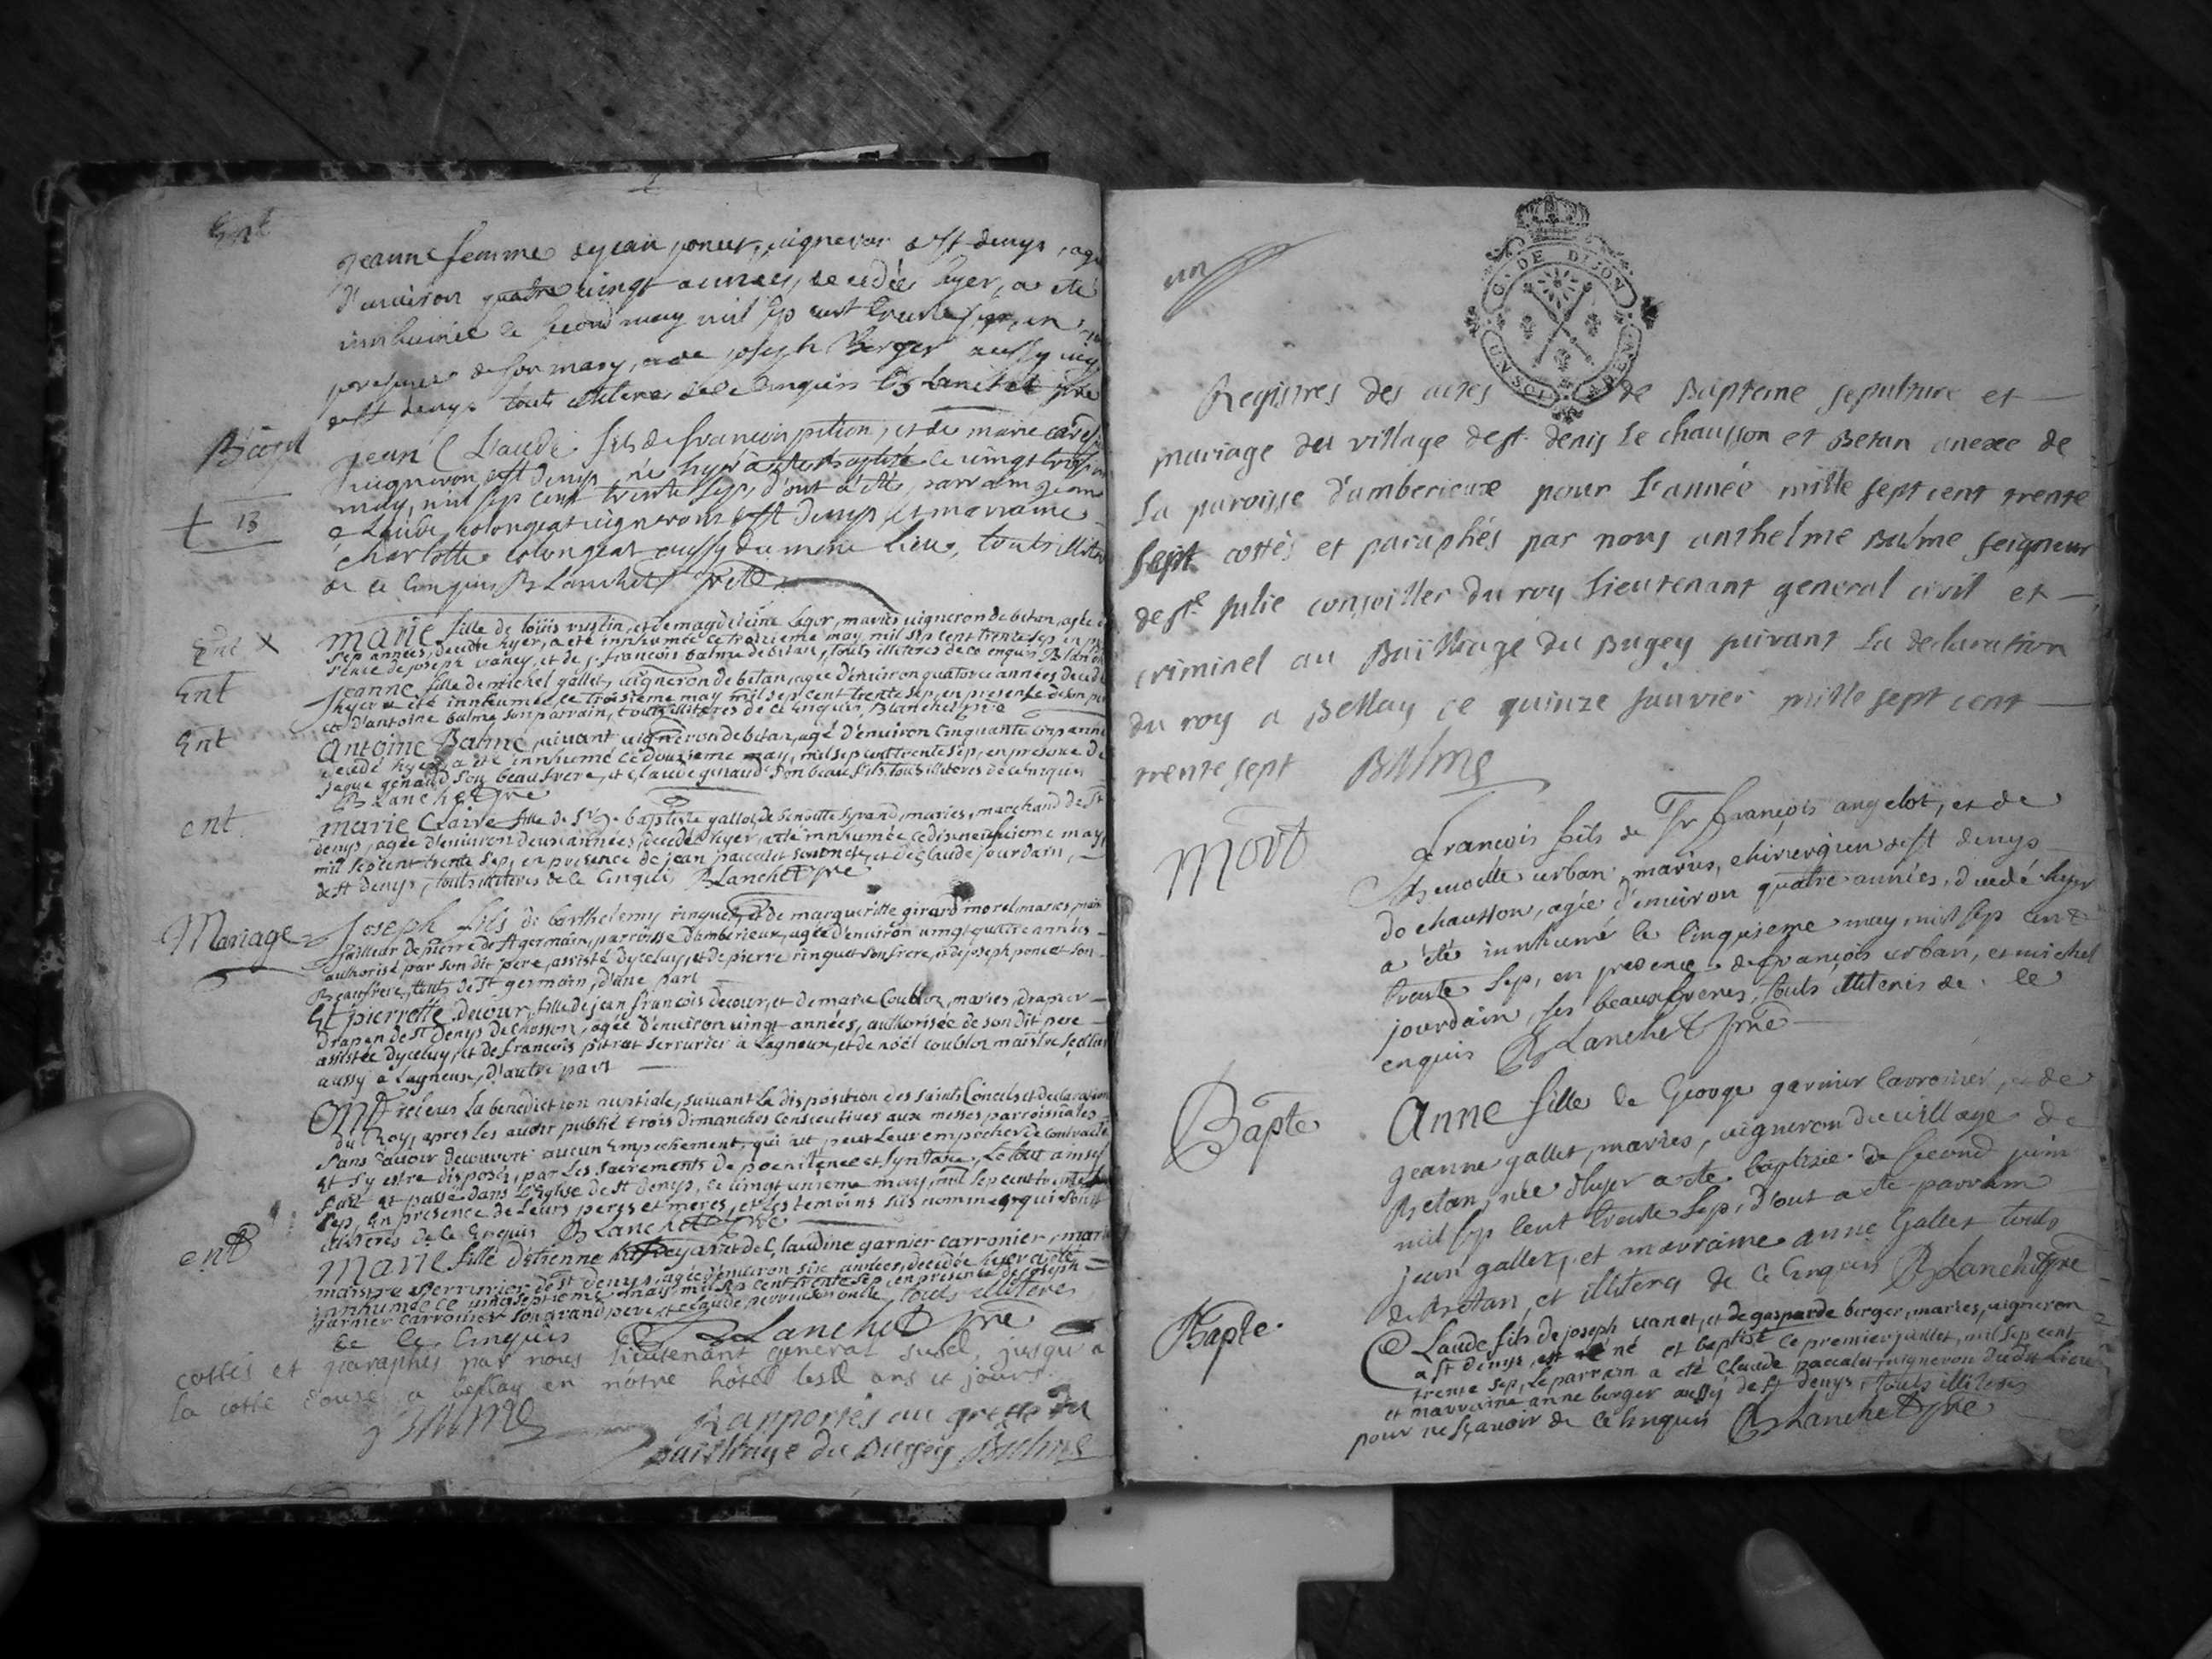 Ent
jeanne femme de jean poncet, vigneron de st denys, agé
d'environ quatre vingt années, decedée hyer, a été
innhumée le second may mil sep cent trente sep, en
presence de son mary, et de joseph Berger aussy
de st denys touts illiteres de ce enquis Blanchet ptre
Bapt
jean Claude fils de francois pition, et de marie
vigneron de st denys, né hyer a été baptisé le vingt
may, mil sep cent trente sep, d'ont a été parrain jean
+ 13
Claude colongeat vigneron de st denys et marraine
charlotte colongeat aussy du meme lieu, touts illiteres
de ce enquis Blanchet ptre
Ent X
marie fille de loüis vustin, et de magdeleine Leger, mariés vigneron de betan, agée
sep années, decedée hyer, a été innhumée ce troisieme may mil sep cent trente sep en
sence de joseph vaney, et de j. francois balme de betan, touts illiteres de ce enquis Blanchet
Ent
jeanne fille de michel gallet, vigneron de betan, agée d'environ quatorze années decedée
hyer a été innhumée ce troisieme may mil sep cent trente sep, en presence de son pere
et d'antoine balme son parrain, touts illiteres de ce enquis, Blanchet ptre
Ent
antoine Balme, vivant vigneron de betan, agé d'environ cinquante cinq années
decedé hyer, a été innhumé ce douzieme may, mil sep cent trente sep, en presence de
jaque genaud son beaufrere, et Claude genaud son beau fils touts illiteres de ce enquis
Blanchet ptre
ent.
marie Claire fille de Sr j. baptiste gallot, de benoitte syrand, mariés, marchand de St
denys, agée d'environ deux années, decedée hyer, a été innhumée ce disneufieme may,
mil sep cent trente sep, en presence de jean paccalet son oncle, et de Claude jourdain,
de st denys, touts illiteres de ce enquis Blanchet ptre
Mariage
joseph fils de barthelemy ringuet, et de margueritte girard morel mariés,
tailleur de pierre de st germain, parroisse d'amberieux, agé d'environ vingt quatre années
authorisé par son dit pere, assisté d'yceluy, et de pierre ringuet son frere, et de joseph poncet son
Beaufrere, touts de st germain, d'une part
Et pierrette decour, fille de jean francois decour, et de marie Coublon, mariés, drapier
drapan de st denys de chosson, agée d'environ vingt années, authorisée de son dit pere
assistée d'yceluy, et de francois pitrat serrurier a Lagneux, et de noël coublon maistre
aussy a Lagneux, d'autre part
Ont receus La benediction nuptiale, suivant la disposition des saints Conciles et declaration
du Roy, apres les avoir publié trois dimanches consecutives aux messes parroissiales
sans avoir decouvert aucun Empechement, qui ait peut Leur empecher de contracté
et s'y estre disposés, par Les sacrements de poenitence et synthaxe, Le tout ainsy
fait et passé dans L'Eglise de st denys, ce vingt unieme may, mil sep cent trente
sep, en presence de Leurs peres et meres, et Les temoins sus nommés qui sont
illiteres de ce Enquis Blanchet ptre
ent
Marie fille d'etienne et de Claudine garnier carronier, mariés
maistre serrurier de st denys, agée d'environ six années, decedée hyer a été
innhumée ce vingseptieme may mil sep cent trente sep en presence de joseph
garnier carronier son grand pere, et Claude perrin son oncle, touts illiteres
de ce Enquis Blanchet ptre
cottés et paraphés par nous lieutenant general susd. jusqu'a
la cotte douze a bellay en notre hôtel lesd ans et jours.
Balme
Rapportés au greffe du
bailliage du Bugey Balme
un
G. DE DIJON
UN SOL
Registres des actes de Bapteme sepulture et
mariage du village de st. denis Le chausson et Betan anexe de
La paroisse d'amberieux pour L'année mille sept cent trente
sept cottés et paraphés par nous anthelme Balme seigneur
de ste Julie conseiller du roy Lieutenant general civil et
criminel au Bailliage du Bugey suivant La declaration
du roy a Bellay ce quinze janvier mille sept cent
trente sept Balme
Mort
francois fils de Sr francois angelot, et de
benoitte urban, mariés, chirurgien de st denys
de chausson, agée d'environ quatre années, decedé hyer
a été innhumé le cinquieme may, mil sep cent
trente sep, en presence de francois urban, et michel
jourdain, ses beauxfreres, touts illiteres de ce
enquis Blanchet ptre
Bapte
Anne fille de George garnier Carronier, et de
jeanne gallet, mariés, vigneron du village de
Betan, née d'hyer a été baptisée le second juin
mil sep cent trente sep, d'ont a été parrain
jean gallet, et marraine anne Gallet touts
de Bettan, et illiteres de ce enquis Blanchet ptre
Bapte.
Claude fils de joseph vanet, et de gasparde berger, mariés, vigneron
a st denys, est né et baptisé ce premier juillet, mil sep cent
trente sep, Le parrain a été Claude paccalet, vigneron dudit Lieu
et marraine anne berger aussy de st denys, touts illiteres
pour ne sçavoir de ce enquis Blanchet ptre